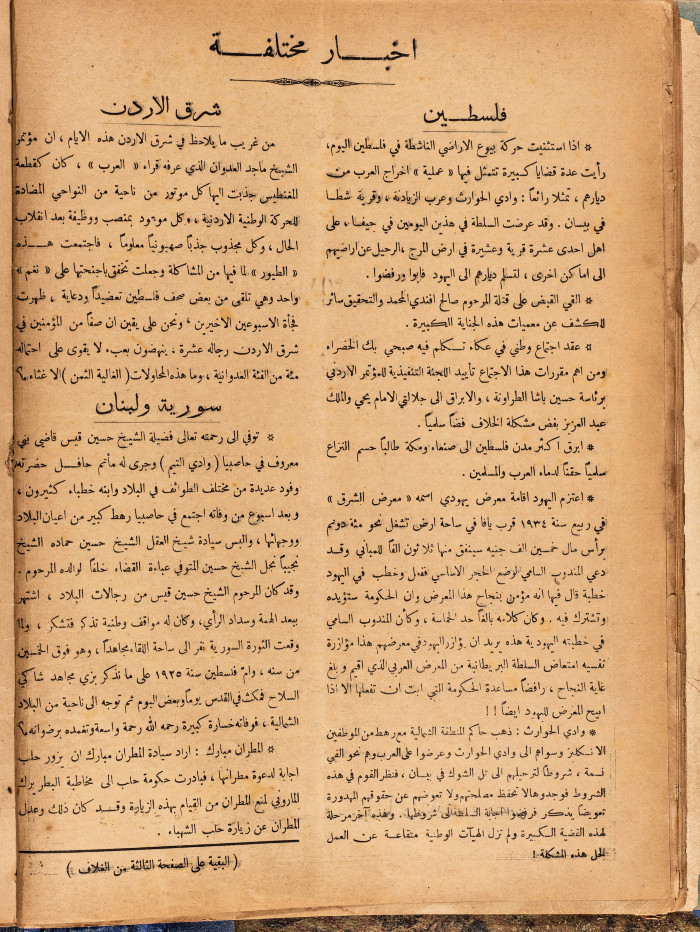 اخبار مختلفة
فلسطين
* اذا استثنيت حركة بيوع الاراضي الناشطة في فلسطين اليوم،
رأيت عدة قضايا كبيرة تتمثل فيها « عملية » اخراج العرب من
ديارهم، تمثلا رائعاً : وادي الحوارث وعرب الزيادنة، وقرية شطا
في بيسان . وقد عرضت السلطة في هذين اليومين في حيفا، على
اهل احدى عشرة قرية وعشيرة في ارض المرج، الرحيل عن اراضيهم
الى اماكن اخرى، لتسلم ديارهم الى اليهود فابوا ورفضوا .
* القي القبض على قتلة المرحوم صالح افندي المحمد والتحقيق سائر
للكشف عن معميات هذه الجناية الكبيرة .
* عقد اجتماع وطني في عكاء تكلم فيه صبحي بك الخضراء
ومن اهم مقررات هذا الاجتماع تأييد اللجنة التنفيذية للمؤتمر الاردني
برئاسة حسين باشا الطراونة، والابراق الى جلالتي الامام يحي والملك
عبد العزيز بفض مشكلة الخلاف فضاً سلمياً .
* ابرق اكثر مدن فلسطين الى صنعاء ومكة طالباً حسم النزاع
سلمياً حقناً لدماء العرب والمسلمين .
* اعتزم اليهود اقامة معرض يهودي اسمه « معرض الشرق »
في ربيع سنة ١٩٣٤ قرب يافا في ساحة ارض تشغل نحو مئة دونم
برأس مال خمسين الف جنيه سينفق منها ثلاثون الفاً للمباني وقد
دعي المندوب السامي لوضع الحجر الاساسي ففعل وخطب في اليهود
خطبة قال فيها انه مؤمن بنجاح هذا المعرض وان الحكومة ستؤيده
وتشترك فيه . وكان كلامه بالغاً حد الحماسة، وكأن المندوب السامي
في خطبته اليهودية هذه يريد ان يؤازر اليهود في معرضهم هذا مؤازرة
تفسيه امتعاض السلطة البريطانية من المعرض العربي الذي اقيم و بلغ
غاية النجاح، رافضاً مساعدة الحكومة التي ابت ان تفعلها الا اذا
ابيح المعرض لليهود ايضاً !!
* وادي الحوارث : ذهب حاكم المنطقة الشمالية مع رهط من الموظفين
الانكليز وسواهم الى وادي الحوارث وعرضوا على العرب وهم نحو الفي
نسمة، شروطاً لترحيلهم الى تل الشوك في بيسان، فنظر القوم في هذه
الشروط فوجدوها لا تحفظ مصلحتهم ولا تعوضهم عن حقوقهم المهدورة
تعويضاً يذكر فرفضوا اجابة السلطة الى شروطها . وهذه آخر مرحلة
لهذه القضية الكبيرة ولم تزل الهيآت الوطنية متقاعة عن العمل
لحل هذه المشكلة !
شرق الاردن
من غريب ما يلاحظ في شرق الاردن هذه الايام، ان مؤتمر
الشيخ ماجد العدوان الذي عرفه قراء « العرب »، كان كقطعة
المغنطيس جذبت اليها كل موتور من ناحية من النواحي المضادة
للحركة الوطنية الاردنية، وكل موعود بمنصب ووظيفة بعد انقلاب
الحال، وكل مجذوب جذباً صهيونياً معلوماً، فاجتمعت هذه
« الطيور » لما فيها من المشاكلة وجعلت تخفق باجنحتها على « نغم »
واحد وهي تلقى من بعض صحف فلسطين تعضيداً ودعاية، ظهرت
فجأة الاسبوعين الاخيرين، ونحن على يقين ان صفاً من المؤمنين في
شرق الاردن رجاله عشرة، ينهضون بعبء لا يقوى على احتماله
مئة من الفئة العدوانية، وما هذه المحاولات ( الغالية الثمن ) الا غثاء
سورية ولبنان
* توفي الى رحمته تعالى فضيلة الشيخ حسين قيس قاضي بني
معروف في حاصبيا ( وادي التيم ) وجرى له مأتم حافل حضرته
وفود عديدة من مختلف الطوائف في البلاد وابنه خطباء كثيرون،
وبعد اسبوع من وفاته اجتمع في حاصبيا رهط كبير من اعيان البلاد
ووجهائها، والبس سيادة شيخ العقل الشيخ حسين حماده الشيخ
نجيباً نجل الشيخ حسين المتوفى عباءة القضاء خلفاً لوالده المرحوم .
وقد كان المرحوم الشيخ حسين قيس من رجالات البلاد، اشتهر
ببعد الهمة وسداد الرأي، وكان له مواقف وطنية تذكر فتشكر، ولما
وقعت الثورة السورية نفر الى ساحة اللقاء مجاهداً، وهو فوق الخمسين
من سنه، وام فلسطين سنة ١٩٢٥ على ما نذكر بزي مجاهد شاكي
السلاح فمكث في القدس يوماً وبعض اليوم ثم توجه الى ناحية من البلاد
الشمالية، فوفاته خسارة كبيرة رحمه الله رحمة واسعة وتغمده برضوانه
* المطران مبارك : اراد سيادة المطران مبارك ان يزور حلب
اجابة لدعوة مطرانها، فبادرت حكومة حلب الى مخاطبة البطريرك
الماروني لمنع المطران من القيام بهذه الزيارة وقد كان ذلك وعدل
المطران عن زيارة حلب الشهباء .
( البقية على الصفحة الثالثة من الغلاف )